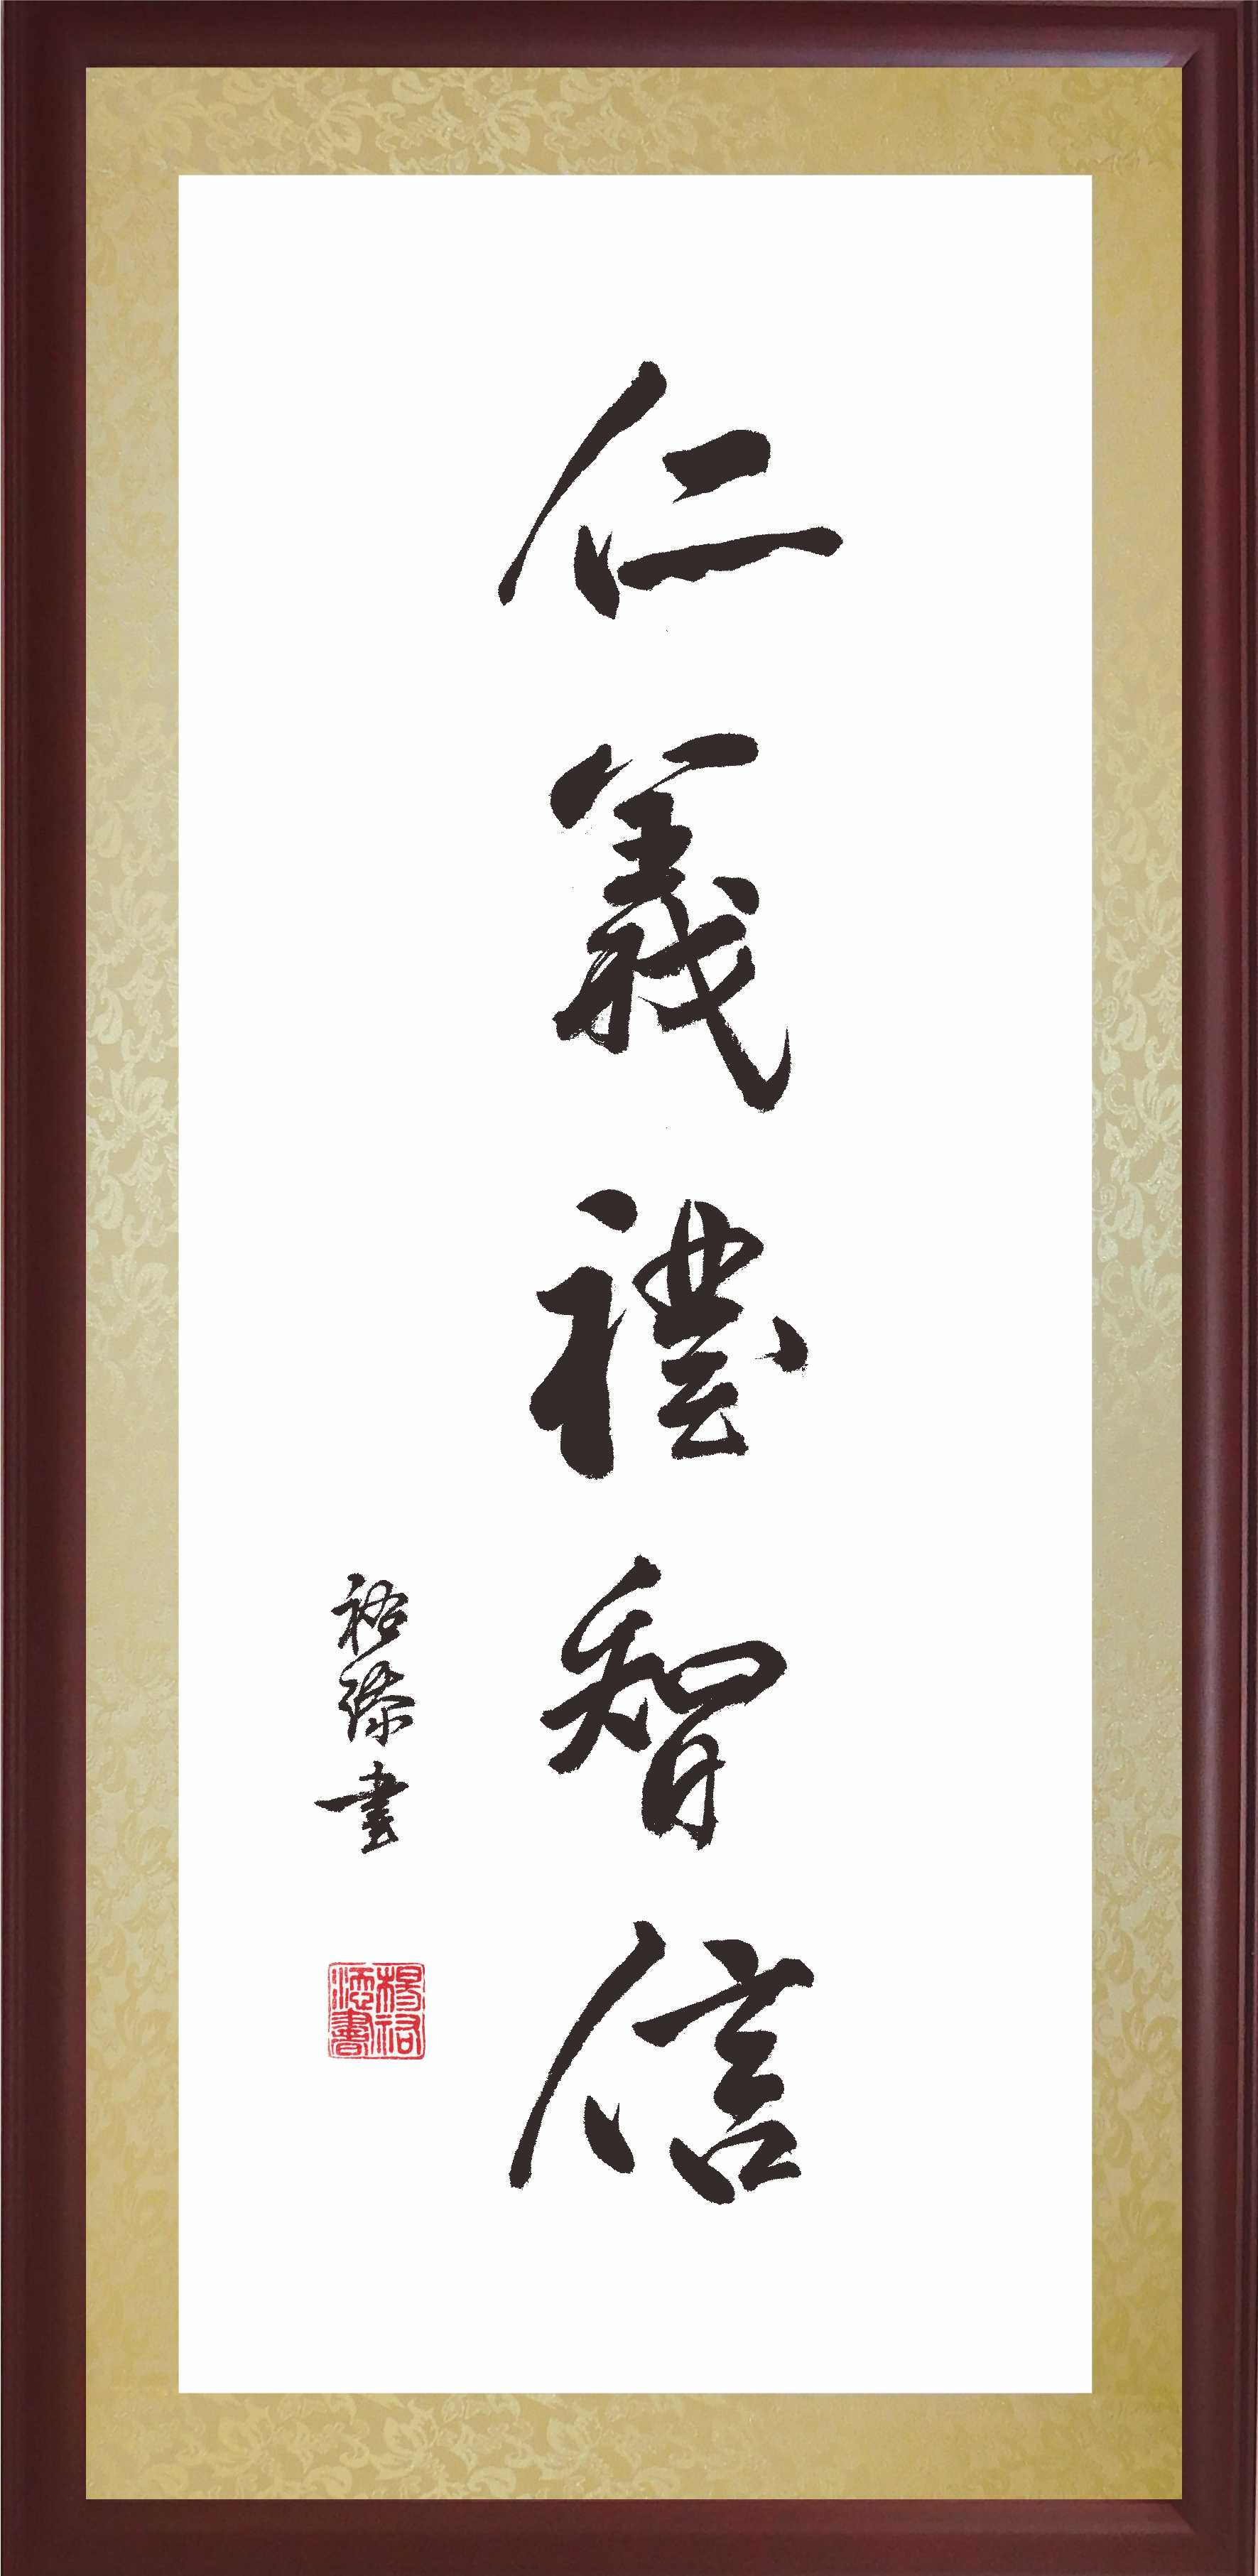 仁義禮智信
裕添書
楊裕添書